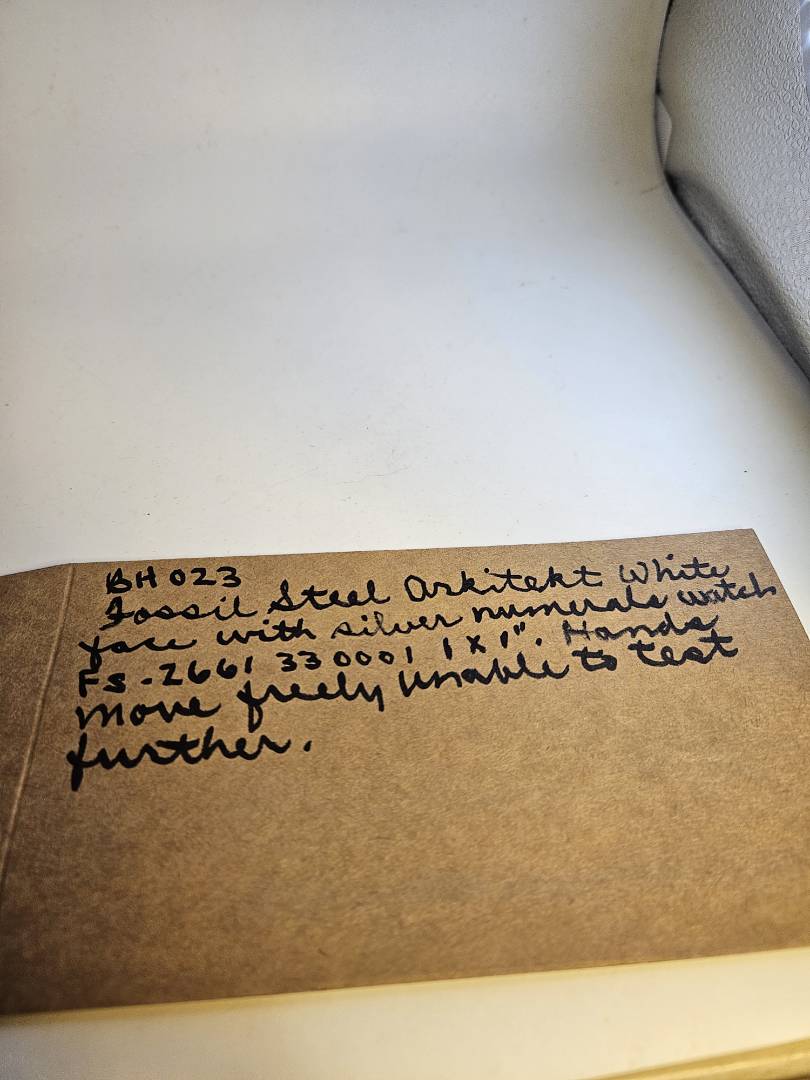 BH 023
Fossil Steel Arkitekt White
face with silver numerals watch
FS-2661 330001 1 x 1". Hands
move freely unable to test
further.